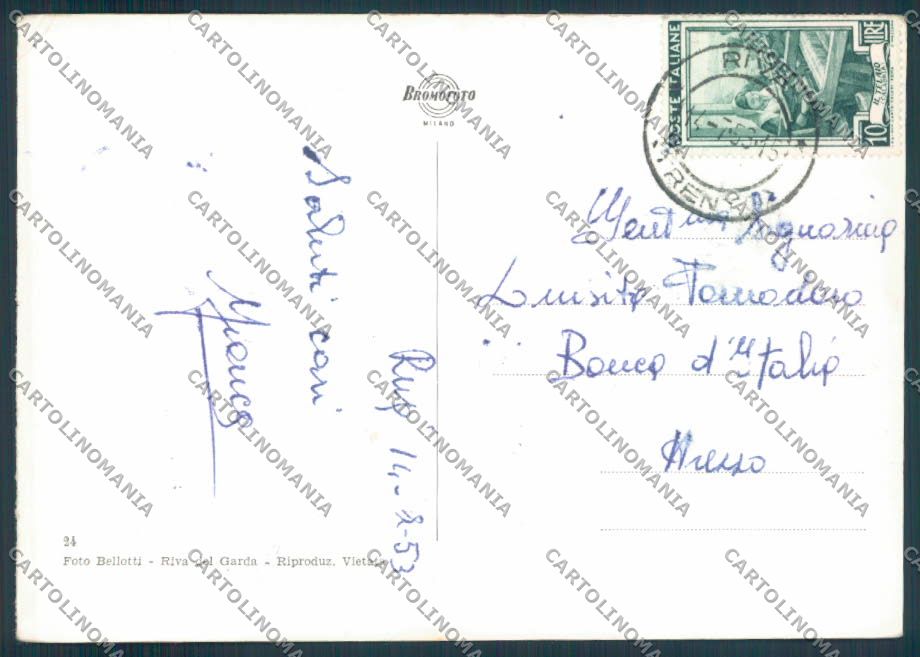 BROMOFOTO
MILANO
Saluti cari
Riva 14-8-53
24
Foto Bellotti - Riva del Garda - Riproduz. Vietata
POSTE ITALIANE
LIRE
10
IL TELAIO
RIVA
TRENTO
Signorina
Luisita Pomodoro
Banca d'Italia
Arezzo
CARTOLINOMANIA